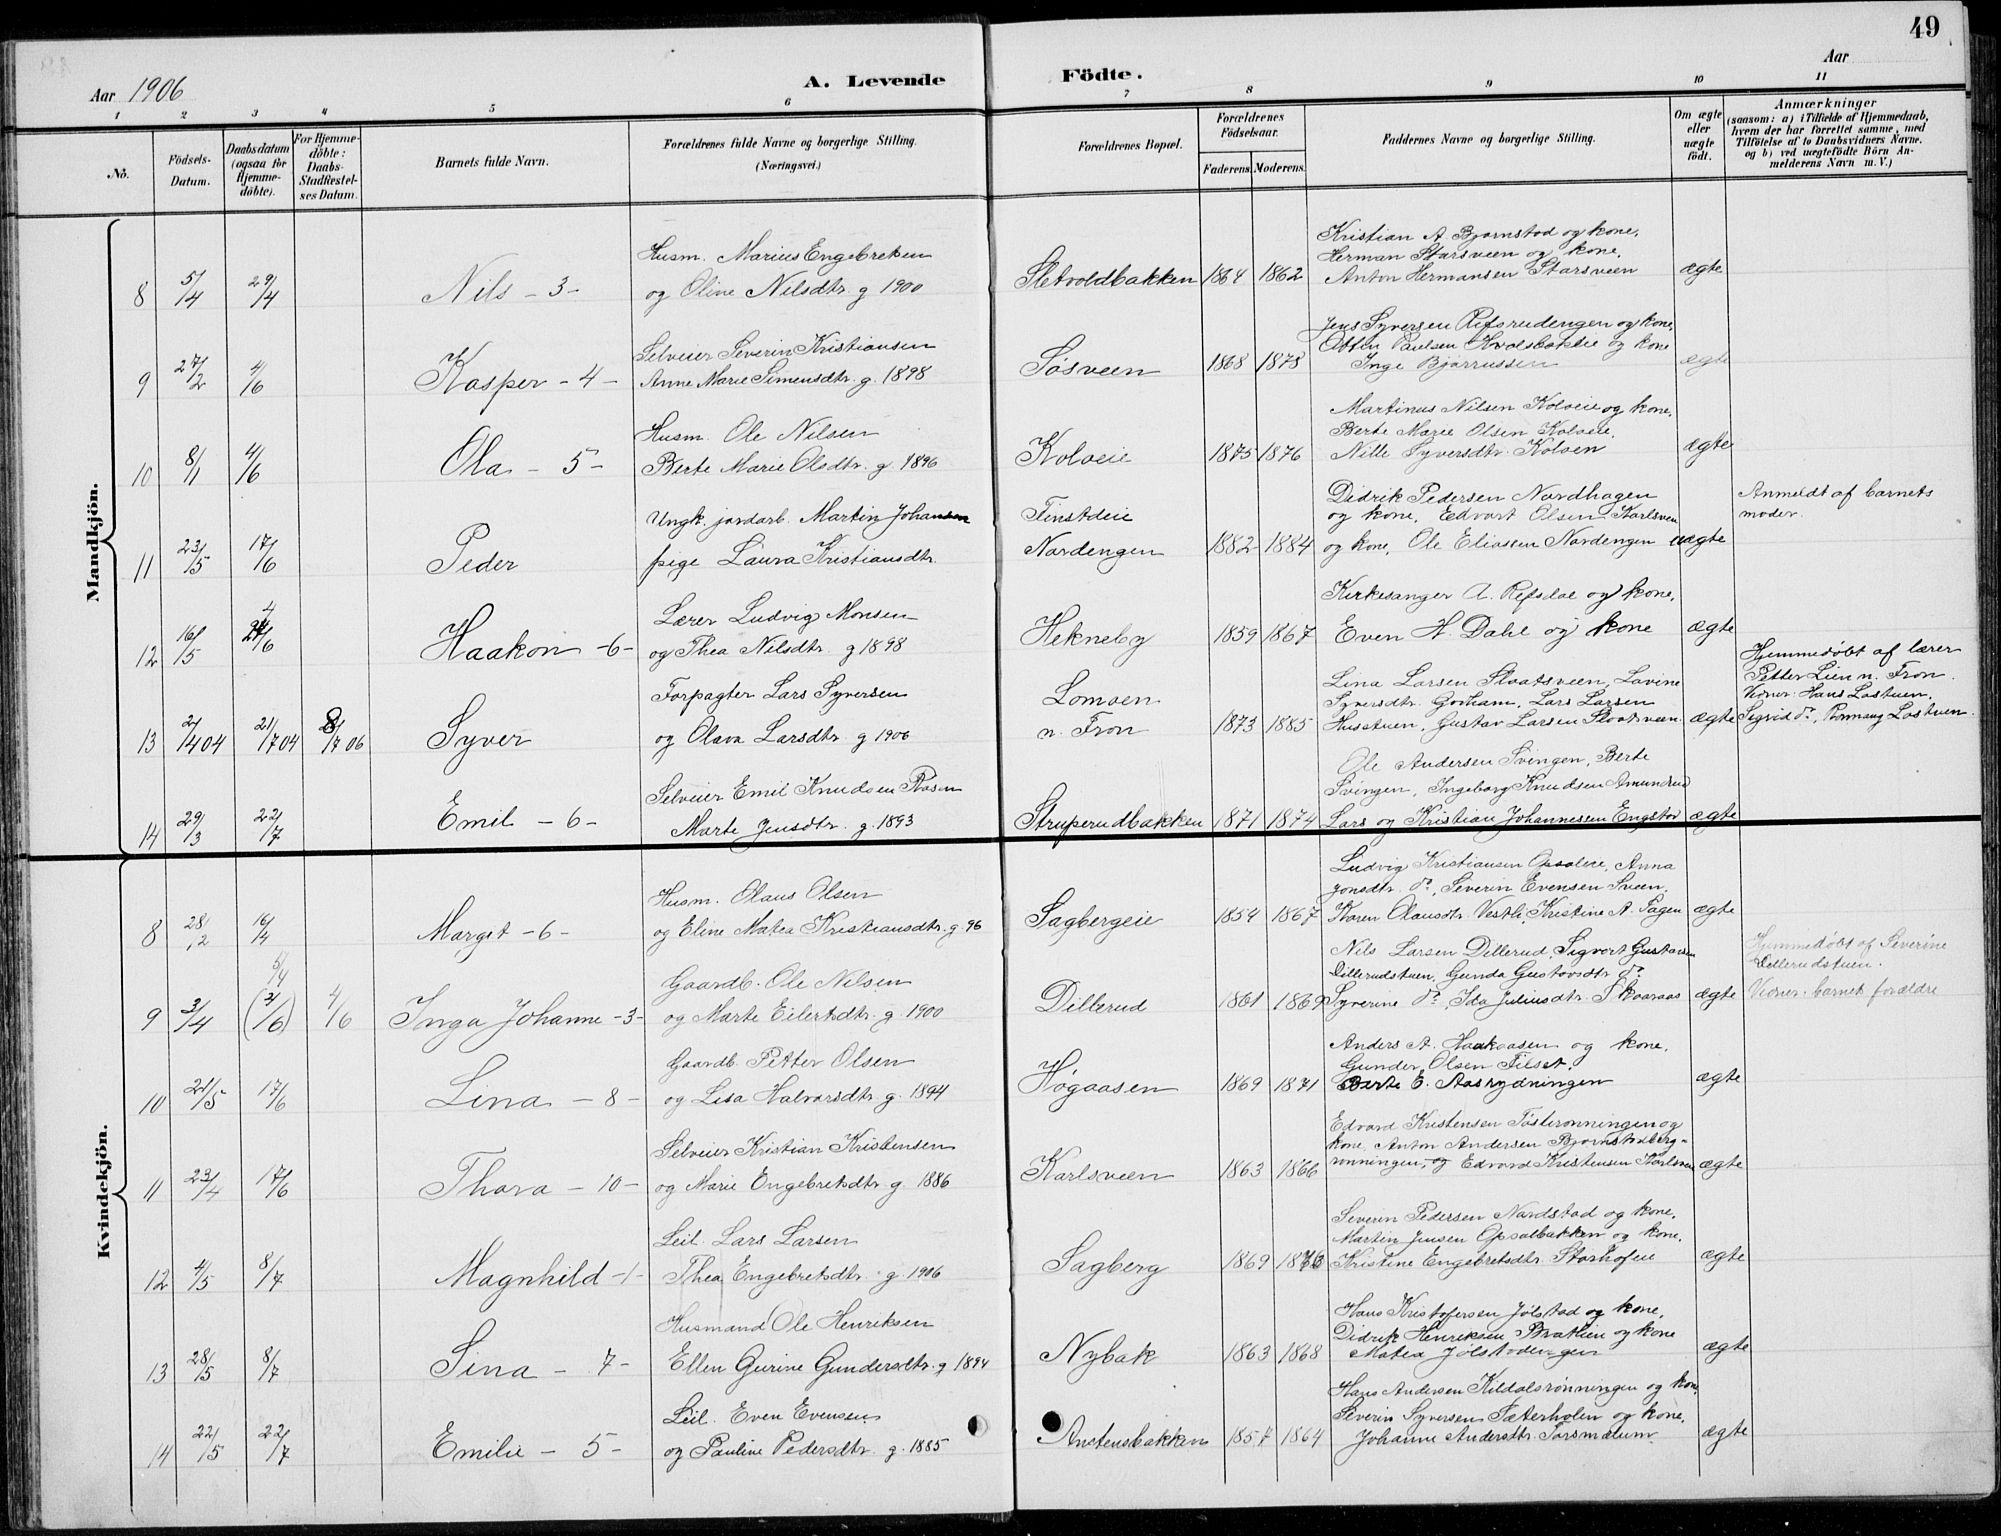 49
Aar 1906
A. Levende
Födte.
Aar
1 2 3 4 5 6 7 8 9 10 11
No.
Födsels-Datum.
Daabsdatum (ogsaa för Hjemmedöbte).
For Hjemmedöbte: Daabs-Stadfæstelses Datum.
Barnets fulde Navn.
Forældrenes fulde Navne og borgerlige Stilling. (Næringsvei.)
Forældrenes Bopæl.
Forældrenes Födselsaar.
Faderens. Moderens.
Faddernes Navne og borgerlige Stilling.
Om ægte eller uægte födt.
Anmærkninger
(saasom: a) i Tilfælde af Hjemmedaab, hvem der har forrettet samme, med Tilföielse af to Daabsvidners Navne. og b) ved uægtefödte Börn Anmelderens Navn m. V.)
Mandkjön.
8 5/4 29/4 Nils - 3 -
Husm. Marius Engebreken
og Oline Nilsdtr. g 1900
Sletvoldbakken 1864 1862
Kristian A. Bjørnstad og kone,
Herman Starsveen og kone,
Anton Hermansen Starsveen
ægte
9 27/2 4/6 Kasper - 4 -
Selveier Severin Kristiansen
Anne Marie Simensdtr. g. 1898
Søsveen 1868 1878
Jens Syversen Refsrudengen og kone,
Otten Paulsen Kvolsbaklie og kone
Inge Bjørrussen
ægte
10 8/1 4/6 Ola - 5 -
Husm. Ole Nilsen
Berte Marie Olsdtr. g. 1896
Kolveie 1875 1876
Martinus Nilsen Kolveie og kone,
Berte Marie Olsen Kolveie,
Nille Syversdtr. Kolven
ægte
11 23/5 17/6 Peder
Ungk. jordarb. Martin Johansen
pige Laura Kristiansdtr.
Finstdeie
Nordengen 1882 1884
Didrik Pedersen Nordhagen
og kone, Edvart Olsen Karlsven
og kone, Ole Eliassen Nordengen
uægte
Anmeldt af barnets
moder.
12 16/5 24/6 Haakon - 6 -
Lærer Ludvig Monsen
og Thea Nilsdtr. g 1898
Hekneby 1859 1867
Kirkesanger A. Refsdal og kone,
Even H. Dahl og kone
ægte
13 2/4 04 21/7 04 8/7 06 Syver
Forpagter Lars Syversen
og Olava Larsdtr. g 1906
Lomoen
n. Fron 1873 1885
Lina Larsen Slaatsveen, Lovine
Syversdtr. Gorham, Lars Larsen
Husstuen, Gustav Larsen Slaatsveen
ægte
Hjemmedøbt af lærer
Petter Lien n. Fron.
Vidner: Hans Lostuen,
Sigrid do, Rønnaug Lostuen.
14 29/3 22/7 Emil - 6 -
Selveier Emil Knudsen Rosen
Marte Jensdtr. g. 1893
Struperudbakken 1871 1874
Ole Andersen Svingen, Berte
Svingen, Ingeborg Knudsen Amundrud
Lars og Kristian Johannessen Engstad
ægte
Kvindekjön.
8 28/2 16/4 Marget - 6 -
Husm. Olaus Olsen
og Eline Matea Kristiansdtr. g. 96
Sagbergeie 1854 1867
Ludvig Kristiansen Opsaleie, Anna
Jonsdtr. do, Severin Evensen Sveen,
Karen Olausdtr. Vestli, Kristine A. Sagen
ægte
9 3/4 5/4 (3/6) 4/6 Inga Johanne - 3 -
Gaardb. Ole Nilsen
og Marte Eilertsdtr. g. 1900
Dillerud 1861 1869
Nils Larsen Dillerud, Sigvart Gustavsen
Dillerudstuen, Gunda Gustavsdtr. do
Syverine do, Ida Juliusdtr. Skaaraas
ægte
Hjemmedøbt af Severine
Dillerudstuen.
Vidner: barnets forældre
10 21/5 17/6 Lina - 8 -
Gaardb. Petter Olsen
og Lisa Halvorsdtr. g. 1894
Høgaasen 1869 1871
Anders A. Haakaasen og kone,
Gunder Olsen Tilset,
Berte E. Aasrydningen
ægte
11 23/4 17/6 Thora - 10 -
Selveier Kristian Kristensen
og Marie Engebretsdtr. g. 1886
Karlsveen 1863 1866
Edvard Kristensen Tøsterønningen og
kone, Anton Andersen Bjørnstadberg-
rønningen, og Edvard Kristensen Karlsven
ægte
12 4/5 8/7 Magnhild - 1 -
Leil. Lars Larsen
Thea Engebretsdtr. g. 1906
Sagberg 1869 1876
Severin Pedersen Nordstad og kone,
Martin Jensen Opsalbakken og kone,
Kristine Engebretsdtr. Storhofeie
ægte
13 28/5 8/7 Sina - 7 -
Husmand Ole Henriksen
Ellen Gurine Gundersdtr. g 1894
Nybak 1863 1868
Hans Kristofersen Jølstad og kone,
Didrik Henriksen Bratlien og kone
Matea Jølstadengen
ægte
14 22/5 22/7 Emilie - 5 -
Leil. Even Evensen
og Pauline Pedersdtr. g. 1885
Anstensbakken 1857 1864
Hans Andersen Kildalsrønningen og kone,
Severin Syversen Sæterholen og kone,
Johanne Andersdtr. Torsmælum.
ægte